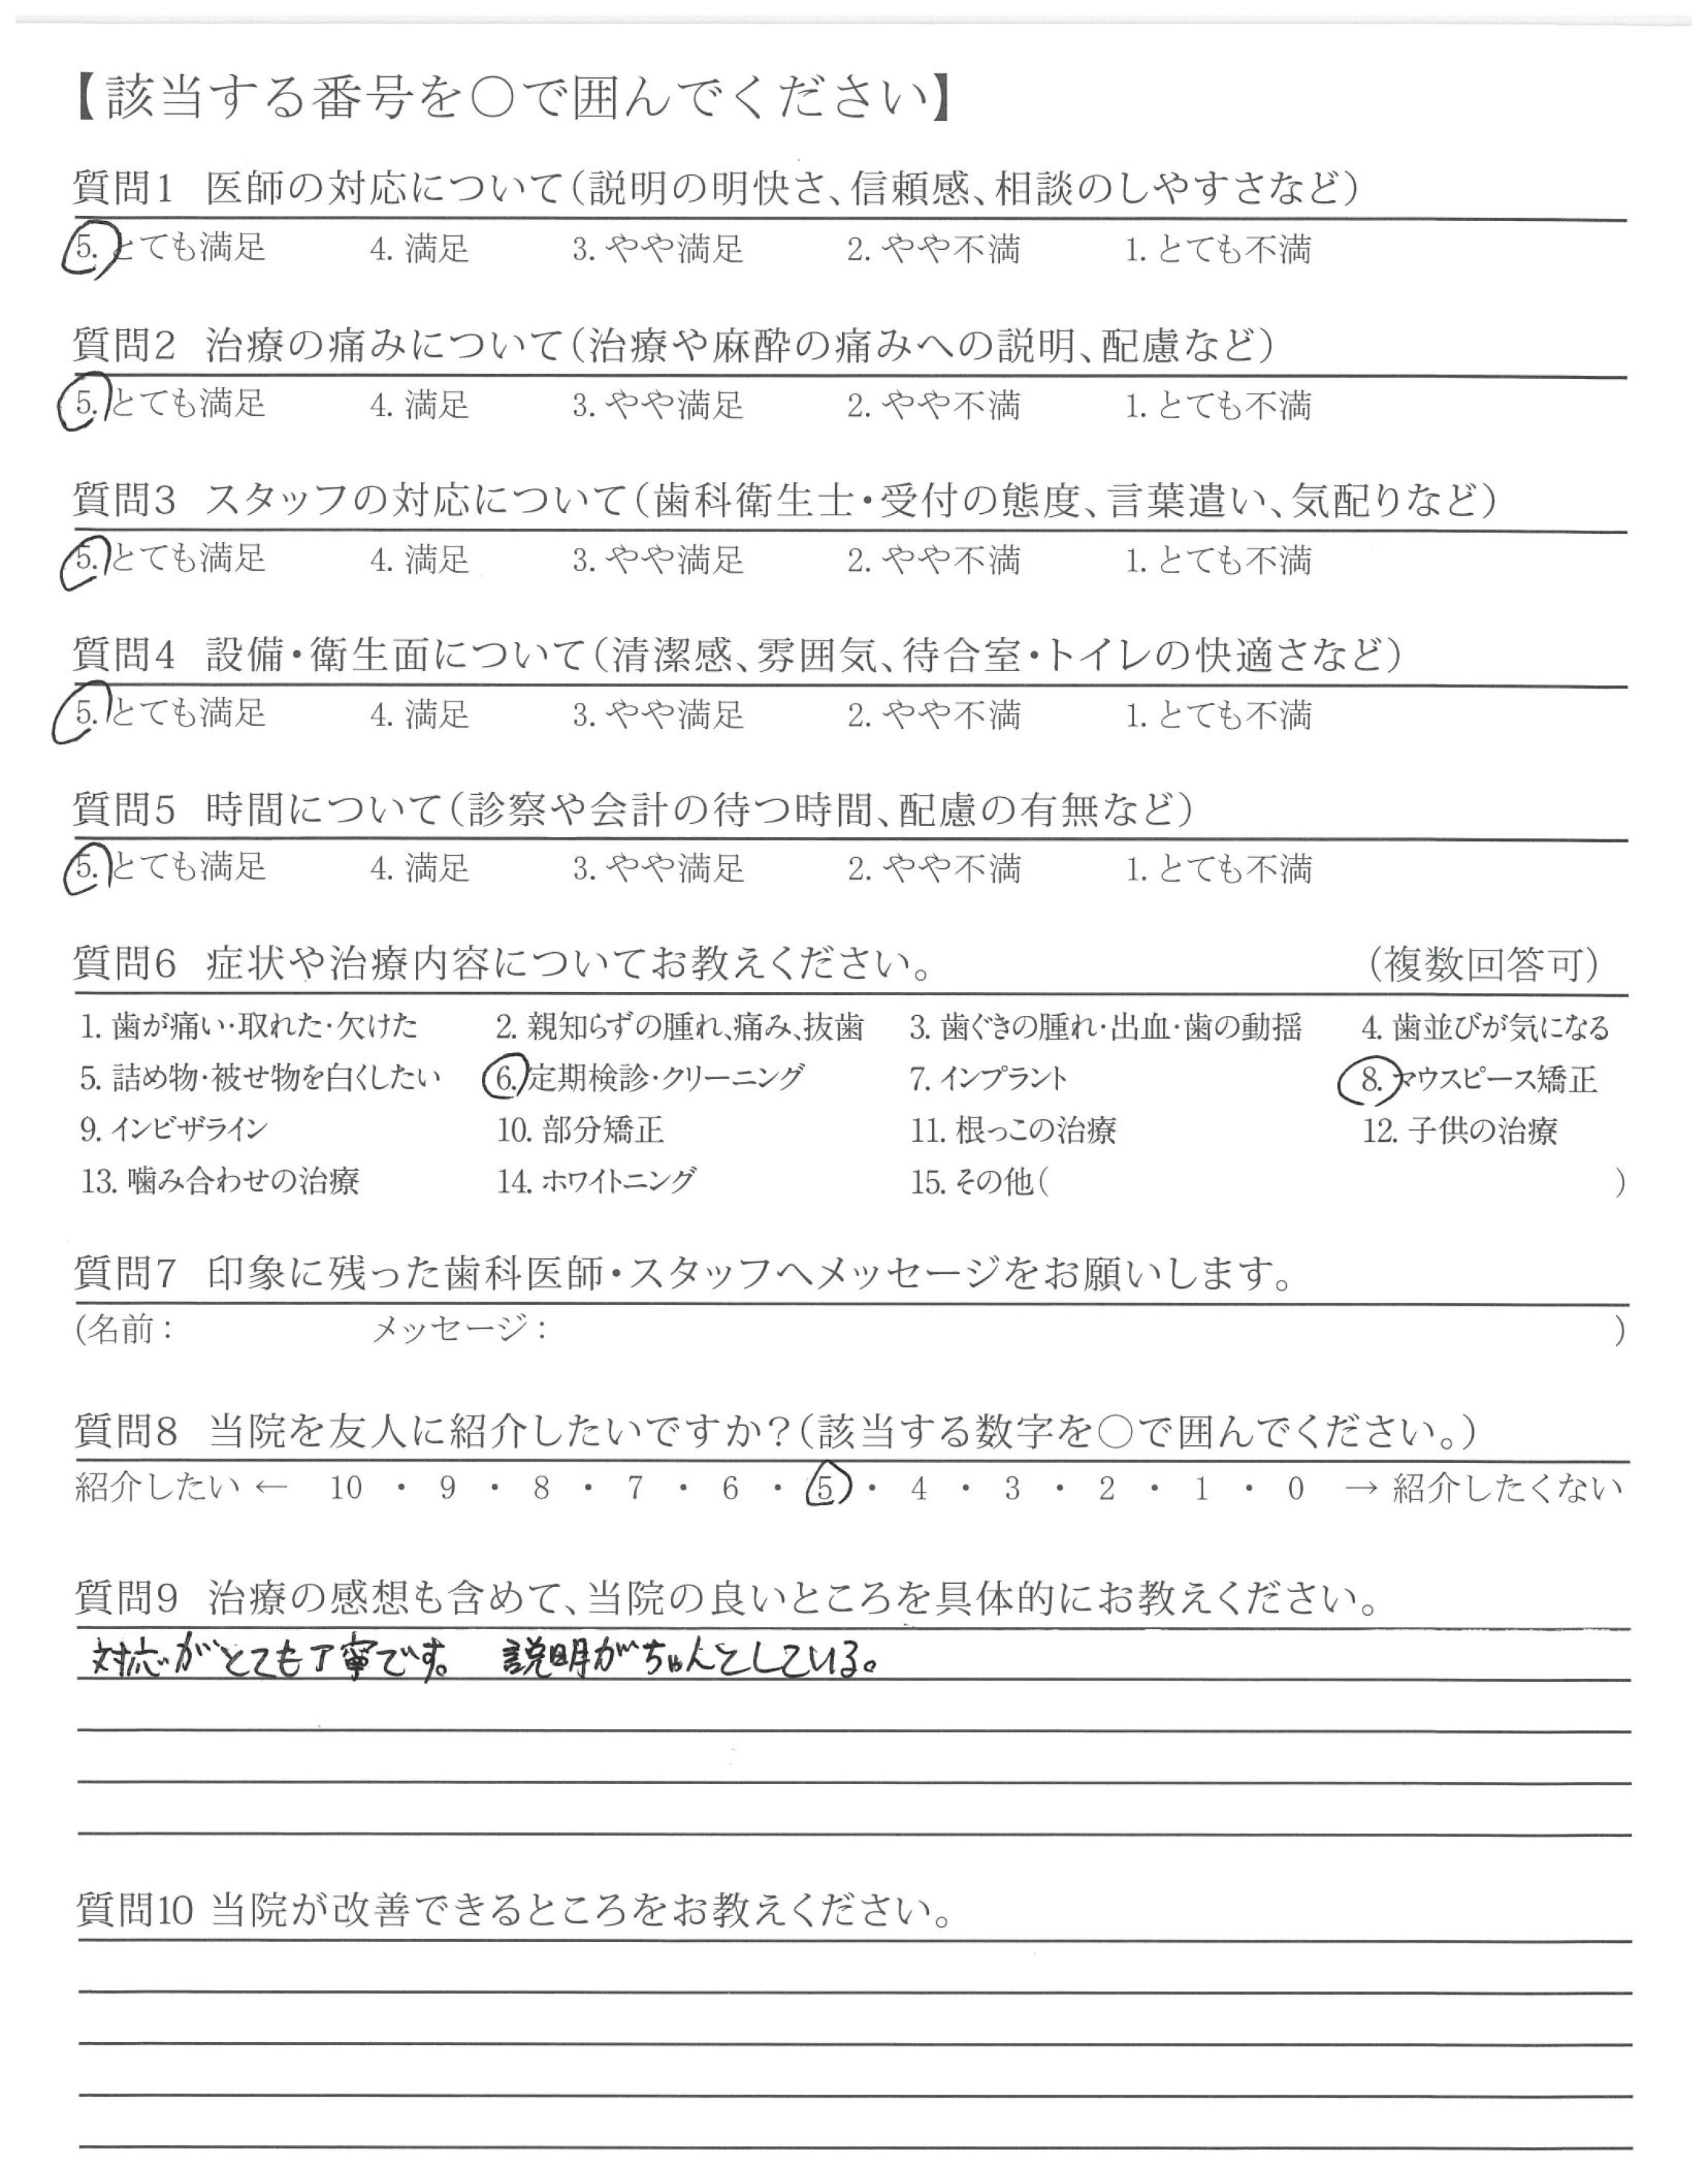 【該当する番号を○で囲んでください】
質問1 医師の対応について（説明の明快さ、信頼感、相談のしやすさなど）
5. とても満足 4. 満足 3. やや満足 2. やや不満 1. とても不満
質問2 治療の痛みについて（治療や麻酔の痛みへの説明、配慮など）
5. とても満足 4. 満足 3. やや満足 2. やや不満 1. とても不満
質問3 スタッフの対応について（歯科衛生士・受付の態度、言葉遣い、気配りなど）
5. とても満足 4. 満足 3. やや満足 2. やや不満 1. とても不満
質問4 設備・衛生面について（清潔感、雰囲気、待合室・トイレの快適さなど）
5. とても満足 4. 満足 3. やや満足 2. やや不満 1. とても不満
質問5 時間について（診察や会計の待つ時間、配慮の有無など）
5. とても満足 4. 満足 3. やや満足 2. やや不満 1. とても不満
質問6 症状や治療内容についてお教えください。 （複数回答可）
1. 歯が痛い・取れた・欠けた 2. 親知らずの腫れ、痛み、抜歯 3. 歯ぐきの腫れ・出血・歯の動揺 4. 歯並びが気になる
5. 詰め物・被せ物を白くしたい 6. 定期検診・クリーニング 7. インプラント 8. マウスピース矯正
9. インビザライン 10. 部分矯正 11. 根っこの治療 12. 子供の治療
13. 噛み合わせの治療 14. ホワイトニング 15. その他（ ）
質問7 印象に残った歯科医師・スタッフへメッセージをお願いします。
（名前： メッセージ： ）
質問8 当院を友人に紹介したいですか？（該当する数字を○で囲んでください。）
紹介したい ← 10 ・ 9 ・ 8 ・ 7 ・ 6 ・ 5 ・ 4 ・ 3 ・ 2 ・ 1 ・ 0 → 紹介したくない
質問9 治療の感想も含めて、当院の良いところを具体的にお教えください。
対応がとても丁寧です。 説明がちゃんとしている。
質問10 当院が改善できるところをお教えください。